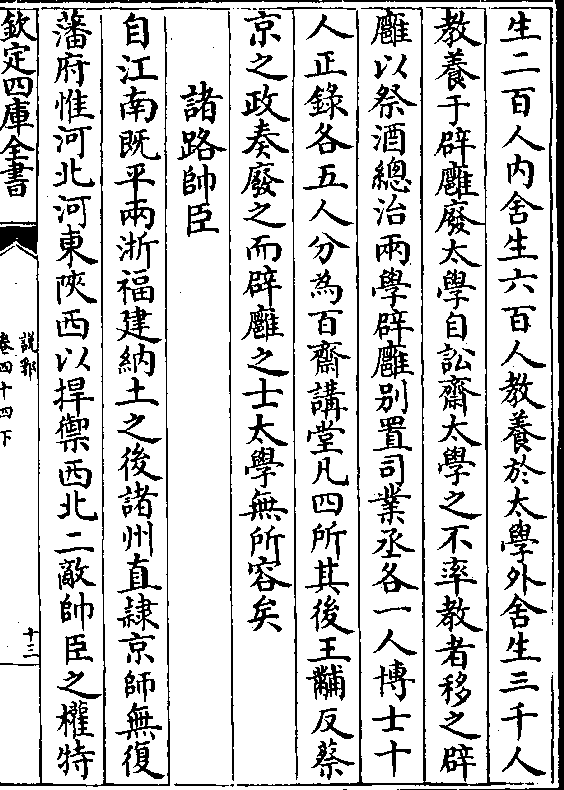 生二百人内舍生六百人教養於太學外舍生三千人
教養于辟廱廢太學自訟齋太學之不率教者移之辟
廱以祭酒總治兩學辟廱别置司業丞各一人博士十
人正錄各五人分為百齋講堂凡四所其後王黼反蔡
京之政奏廢之而辟廱之士太學無所容矣
諸路帥臣
自江南既平兩浙福建納土之後諸州直隸京師無復
藩府惟河北河東陜西以捍禦西北二敵帥臣之權特
欽定四庫全書
說郛
卷四十四下
十三